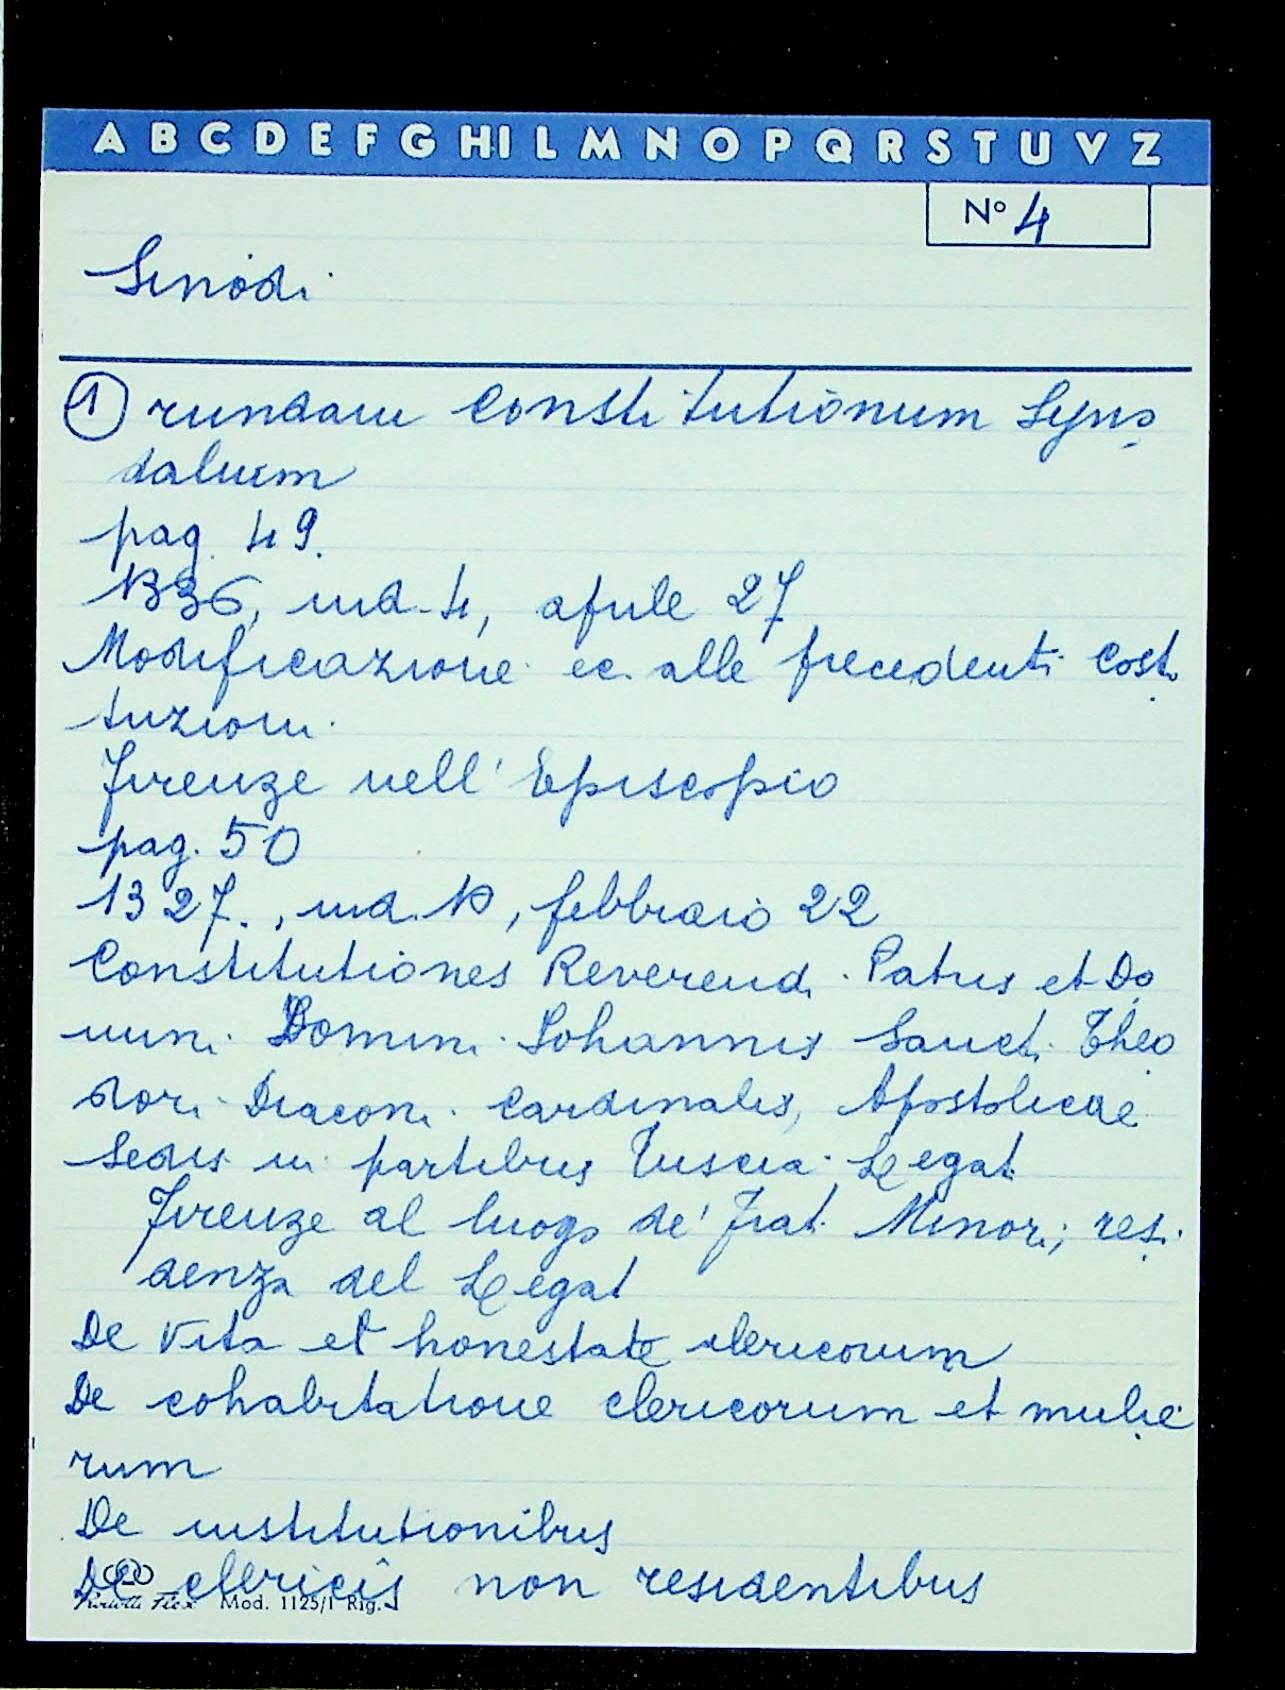 A B C D E F G H I L M N O P Q R S T U V Z
N° 4
Sinodi
1 rundam Constitutionum Syno
dalium
pag. 49.
1336, ind. 4, aprile 27
Modificazione ec. alle precedenti Costi
tuzioni
Firenze nell' Episcopio
pag. 50
1327., ind. 10, febbraio 22
Constitutiones Reverendi Patris et Do
mini Domini Iohannis Sancti Theo
dori Diaconi Cardinalis, Apostolicae
Sedis in partibus Tuscia Legati
Firenze al luogo de' Frati Minori; resi
denza del Legat
De Vita et honestate clericorum
De cohabitatione clericorum et mulie
rum
De institutionibus
De clericis non residentibus
Mod. 1125/1 Rig.